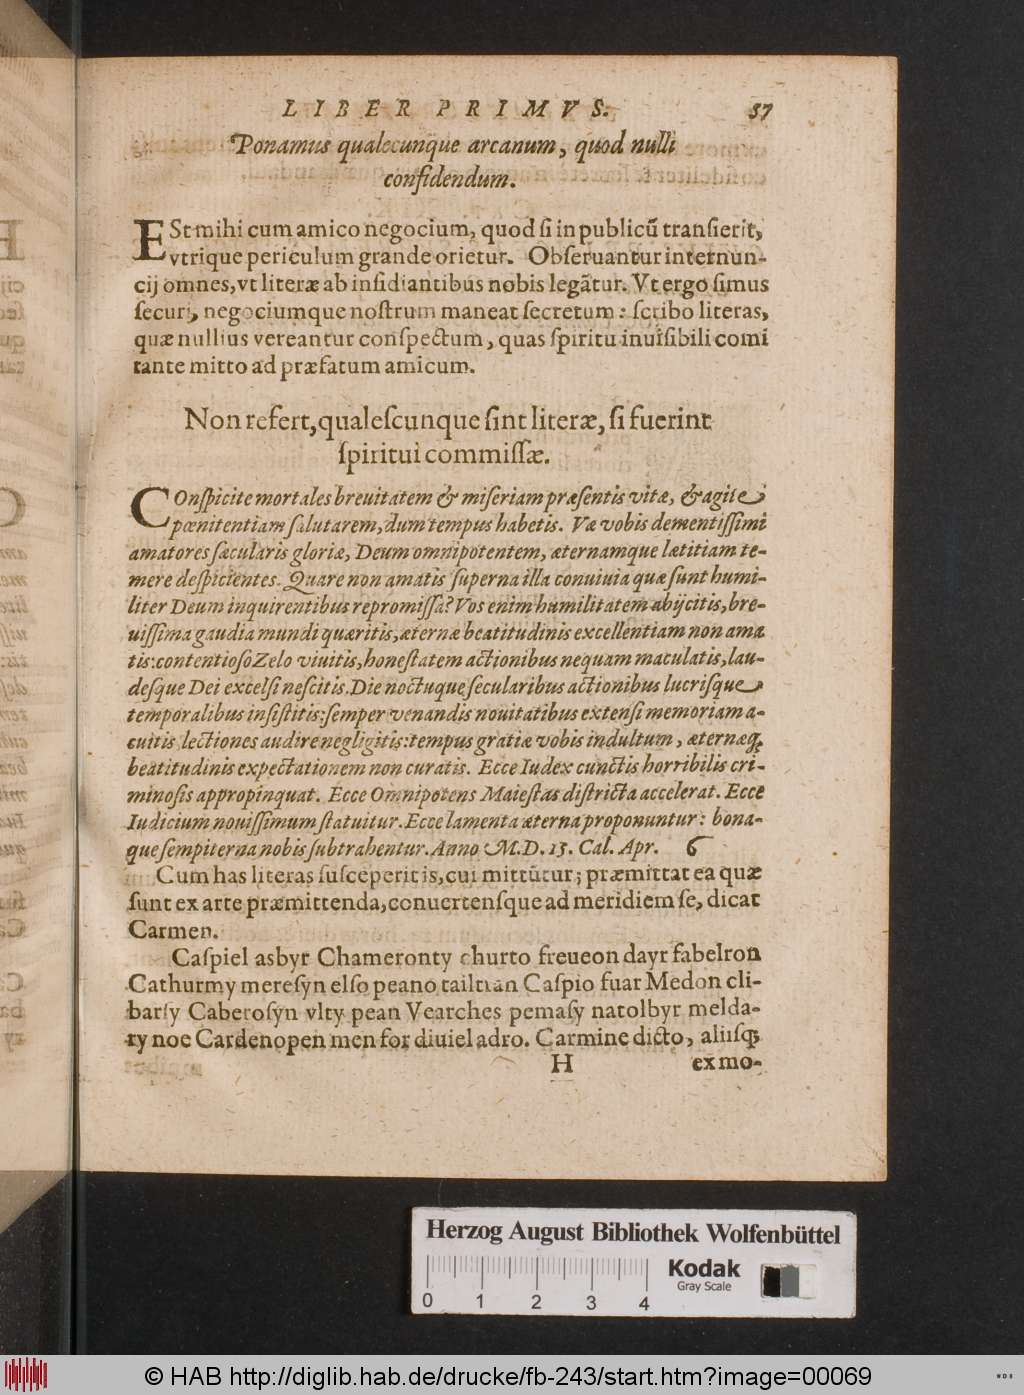 LIBER PRIMVS. 57
Ponamus qualecunque arcanum, quod nulli
confidendum.
ESt mihi cum amico negocium, quod ſi in publicũ tranſierit,
vtrique periculum grande orietur. Obſeruantur internun-
cij omnes, vt literæ ab inſidiantibus nobis legãtur. Vt ergo ſimus
ſecuri, negociumque noſtrum maneat ſecretum: ſcribo literas,
quæ nullius vereantur conſpectum, quas ſpiritu inuiſibili comi
tante mitto ad præfatum amicum.
Non refert, qualeſcunque ſint literæ, ſi fuerint
ſpiritui commiſſæ.
COnſpicite mortales breuitatem & miſeriam præſentis vitæ, & agite
pœnitentiam ſalutarem, dum tempus habetis. Væ vobis dementiſſimi
amatores ſæcularis gloriæ, Deum omnipotentem, æternamque lætitiam te-
mere deſpicientes. Quare non amatis ſuperna illa conuiuia quæ ſunt humi-
liter Deum inquirentibus repromiſſa? Vos enim humilitatem abijcitis, bre-
uiſſima gaudia mundi quæritis, æternæ beatitudinis excellentiam non ama
tis: contentioſo Zelo viuitis, honeſtatem actionibus nequam maculatis, lau-
deſque Dei excelſi neſcitis. Die noctuque ſecularibus actionibus lucriſque
temporalibus inſiſtitis: ſemper venandis nouitatibus extenſi memoriam a-
cuitis, lectiones audire negligitis: tempus gratiæ vobis indultum, æternæq́;
beatitudinis expectationem non curatis. Ecce Iudex cunctis horribilis cri-
minoſis appropinquat. Ecce Omnipotens Maieſtas diſtricta accelerat. Ecce
Iudicium nouiſſimum ſtatuitur. Ecce lamenta æterna proponuntur: bona-
que ſempiterna nobis ſubtrahentur. Anno M.D. 15. Cal. Apr. 6
Cum has literas ſuſceperit is, cui mittũtur; præmittat ea quæ
ſunt ex arte præmittenda, conuertenſque ad meridiem ſe, dicat
Carmen.
Caſpiel asbyr Chameronty churto freueon dayr fabelron
Cathurmy mereſyn elſo peano tailtran Caſpio fuar Medon cli-
barſy Caberoſyn vlty pean Vearches pemaſy natolbyr melda-
ry noe Cardenopen men for diuiel adro. Carmine dicto, aliiſq́;
H ex mo-
Herzog August Bibliothek Wolfenbüttel
Kodak
Gray Scale
0 1 2 3 4
© HAB http://diglib.hab.de/drucke/fb-243/start.htm?image=00069